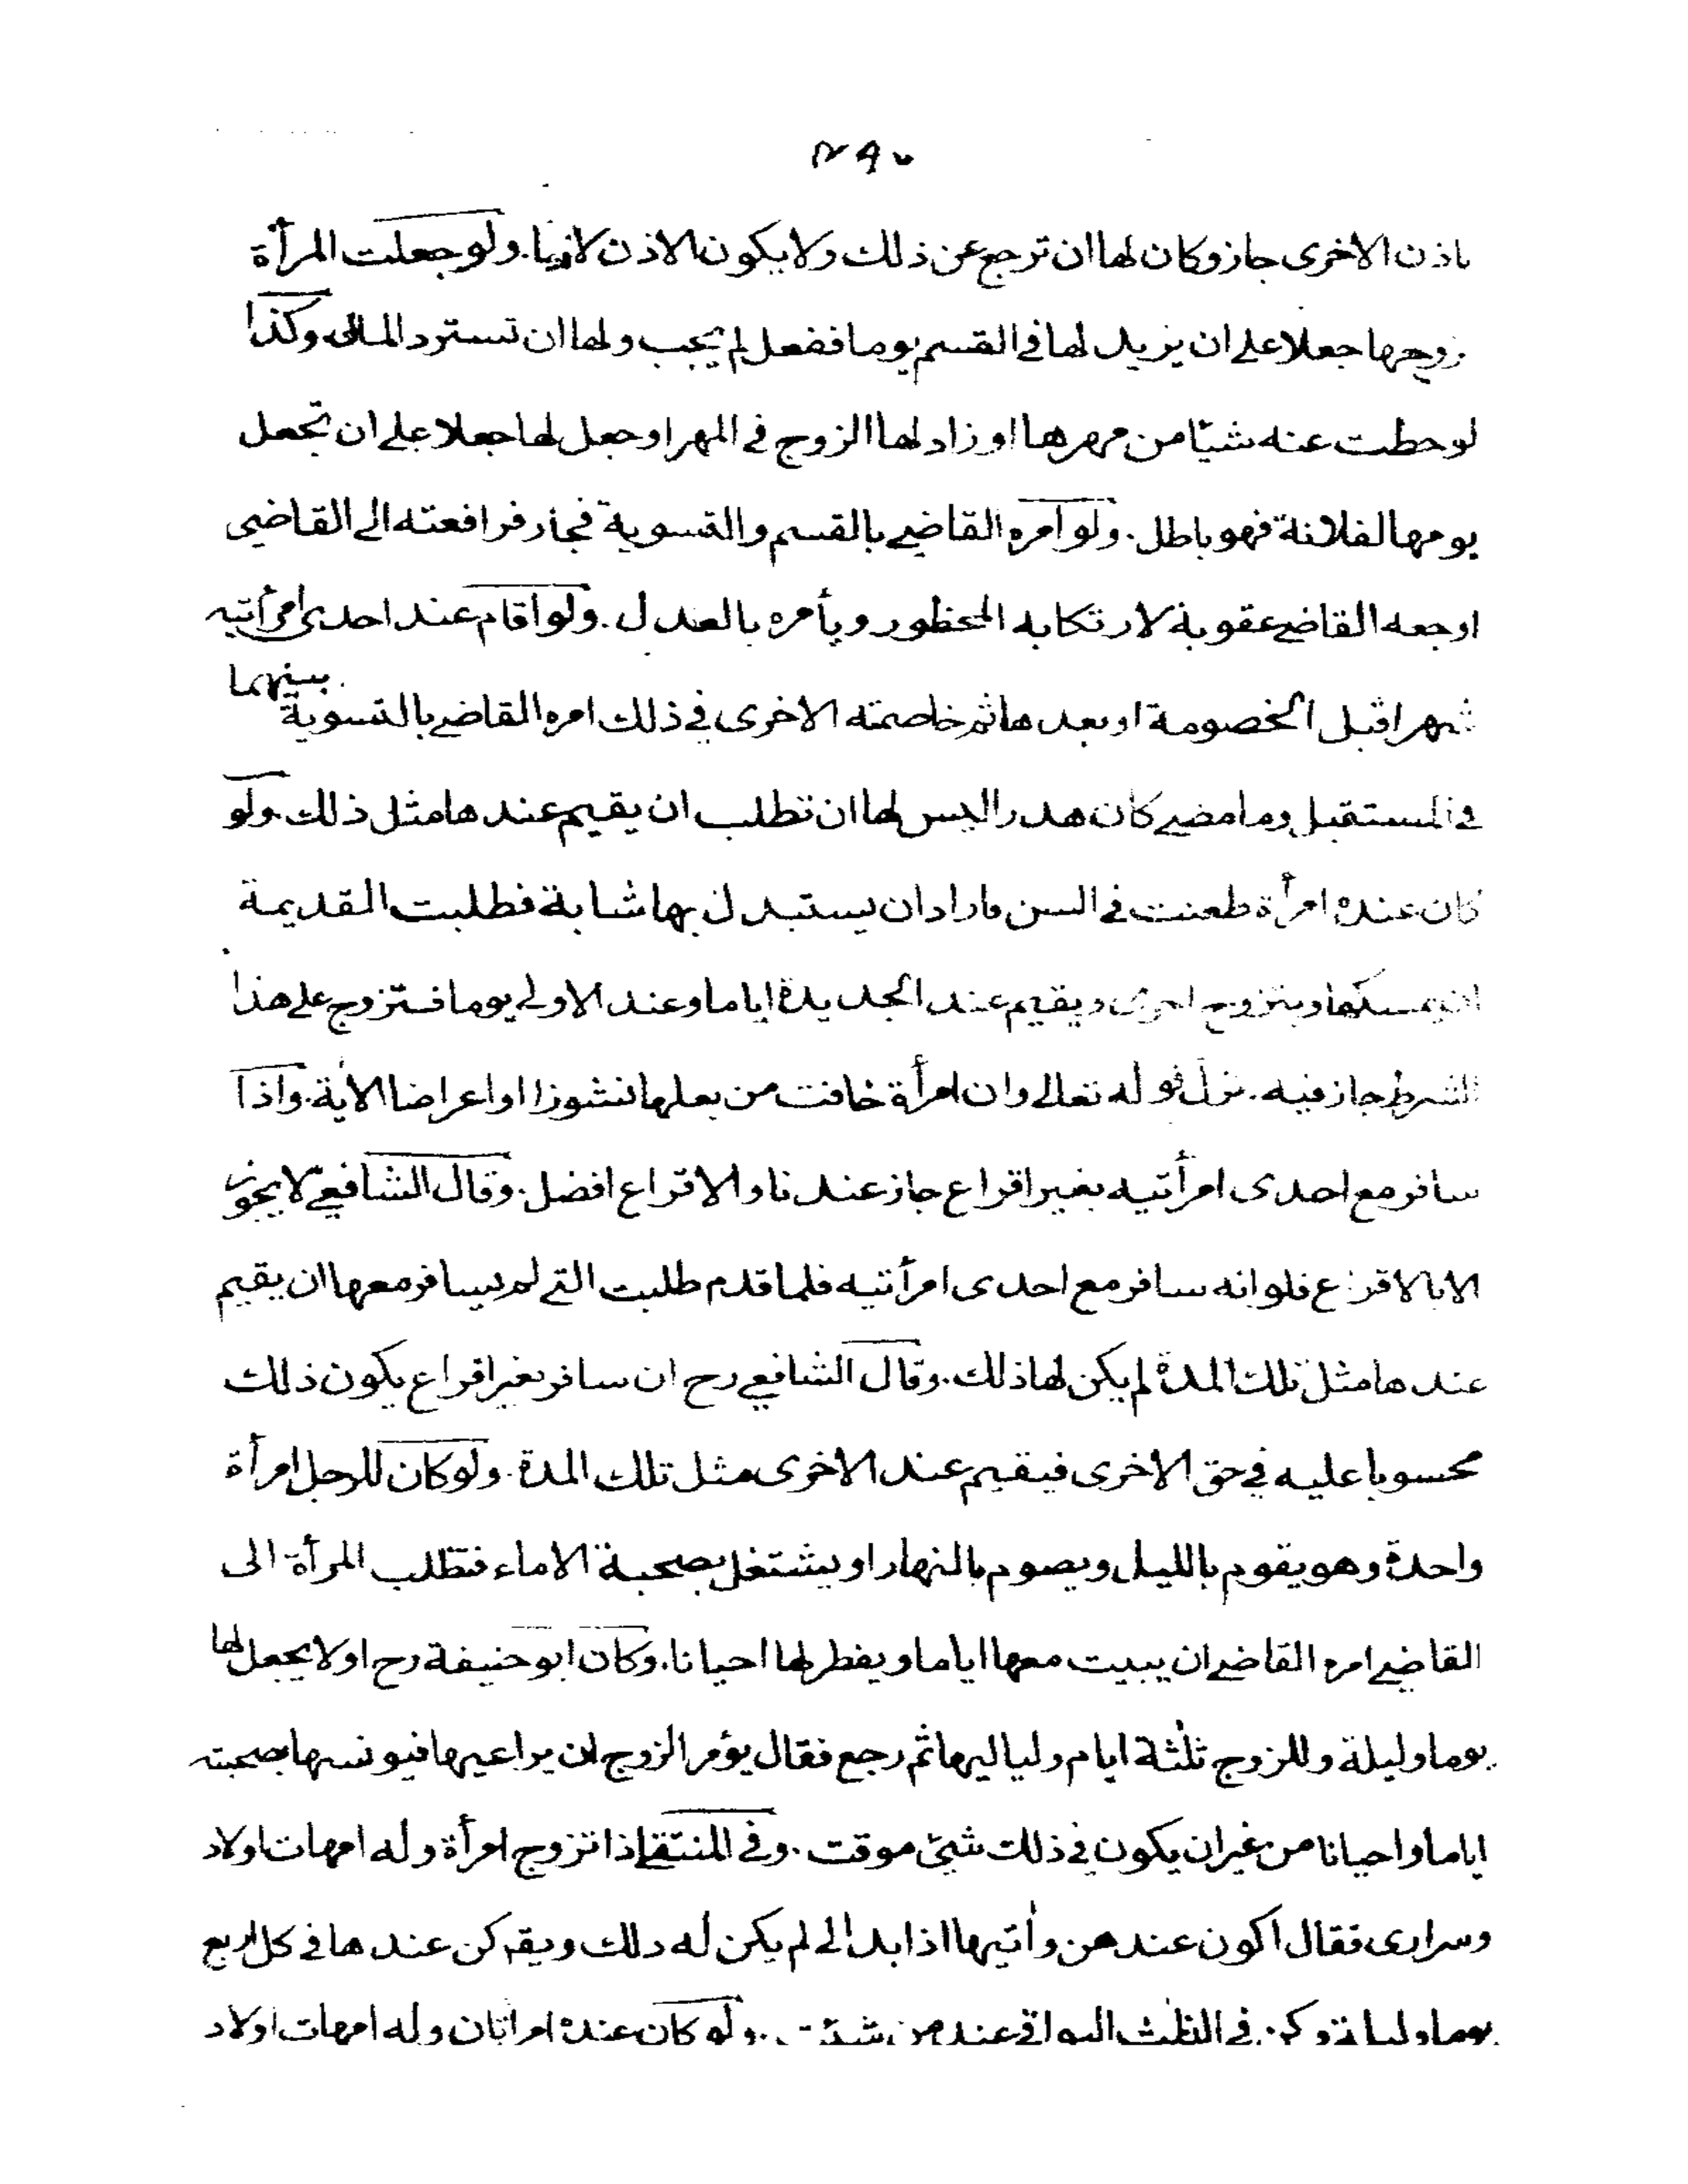 ٢٩٠
باذن الاخرى جاز وكان لها ان ترجع عن ذلك ولا يكون الاذن لازما. ولو جعلت المرأة
زوجها جعلا على ان يزيد لها في القسم يوما ففعل لم يجب ولها ان تسترد المال وكذا
لو حطت عنه شيئا من مهرها او زاد لها الزوج في المهر او جعل لها جعلا على ان تجعل
يومها لفلانة فهو باطل. ولو امره القاضي بالقسم والتسوية فجار فرافعته الى القاضي
اوجعه القاضي عقوبة لارتكابه المحظور ويأمره بالعدل. ولو اقام عند احدى امرأتيه
شهرا قبل الخصومة او بعدها ثم خاصمته الاخرى في ذلك امره القاضي بالتسوية بينهما
في المستقبل وما مضى كان هدرا ليس لها ان تطلب ان يقيم عندها مثل ذلك. ولو
كان عنده امرأة طعنت في السن فاراد ان يستبدل بها شابة فطلبت القديمة
ان يمسكها ويتزوج اخرى ويقيم عند الجديدة اياما وعند الاولى يوما فتزوج على هذا
الشرط جاز فيه. نزل قوله تعالى وان امرأة خافت من بعلها نشوزا او اعراضا الاية. واذا
سافر مع احدى امرأتيه بغير اقراع جاز عندنا والاقراع افضل. وقال الشافعي لا يجوز
الا بالاقراع فلو انه سافر مع احدى امرأتيه فلما قدم طلبت التي لم يسافر معها ان يقيم
عندها مثل تلك المدة لم يكن لها ذلك. وقال الشافعي رح ان سافر بغير اقراع يكون ذلك
محسوبا عليه في حق الاخرى فيقيم عند الاخرى مثل تلك المدة. ولو كان للرجل امرأة
واحدة وهو يقوم بالليل ويصوم بالنهار او يشتغل بصحبة الاماء فتظلب المرأة الى
القاضي امره القاضي ان يبيت معها اياما ويفطر لها احيانا. وكان ابو حنيفة رح اولا يجعل لها
يوما وليلة وللزوج ثلثة ايام ولياليها ثم رجع فقال يؤمر الزوج ان يراعيها فيونسها بصحبته
اياما واحيانا من غير ان يكون في ذلك شيئ موقت. وفي المنتقى اذا تزوج امرأة وله امهات اولاد
وسراري فقال اكون عندهن وأتيها اذا بدا لي لم يكن له ذلك ويقر كن عندها في كل اربع
يوما وليلة وكن في الثلث البواقي عند من شئت. ولو كان عنده امرأتان وله امهات اولاد